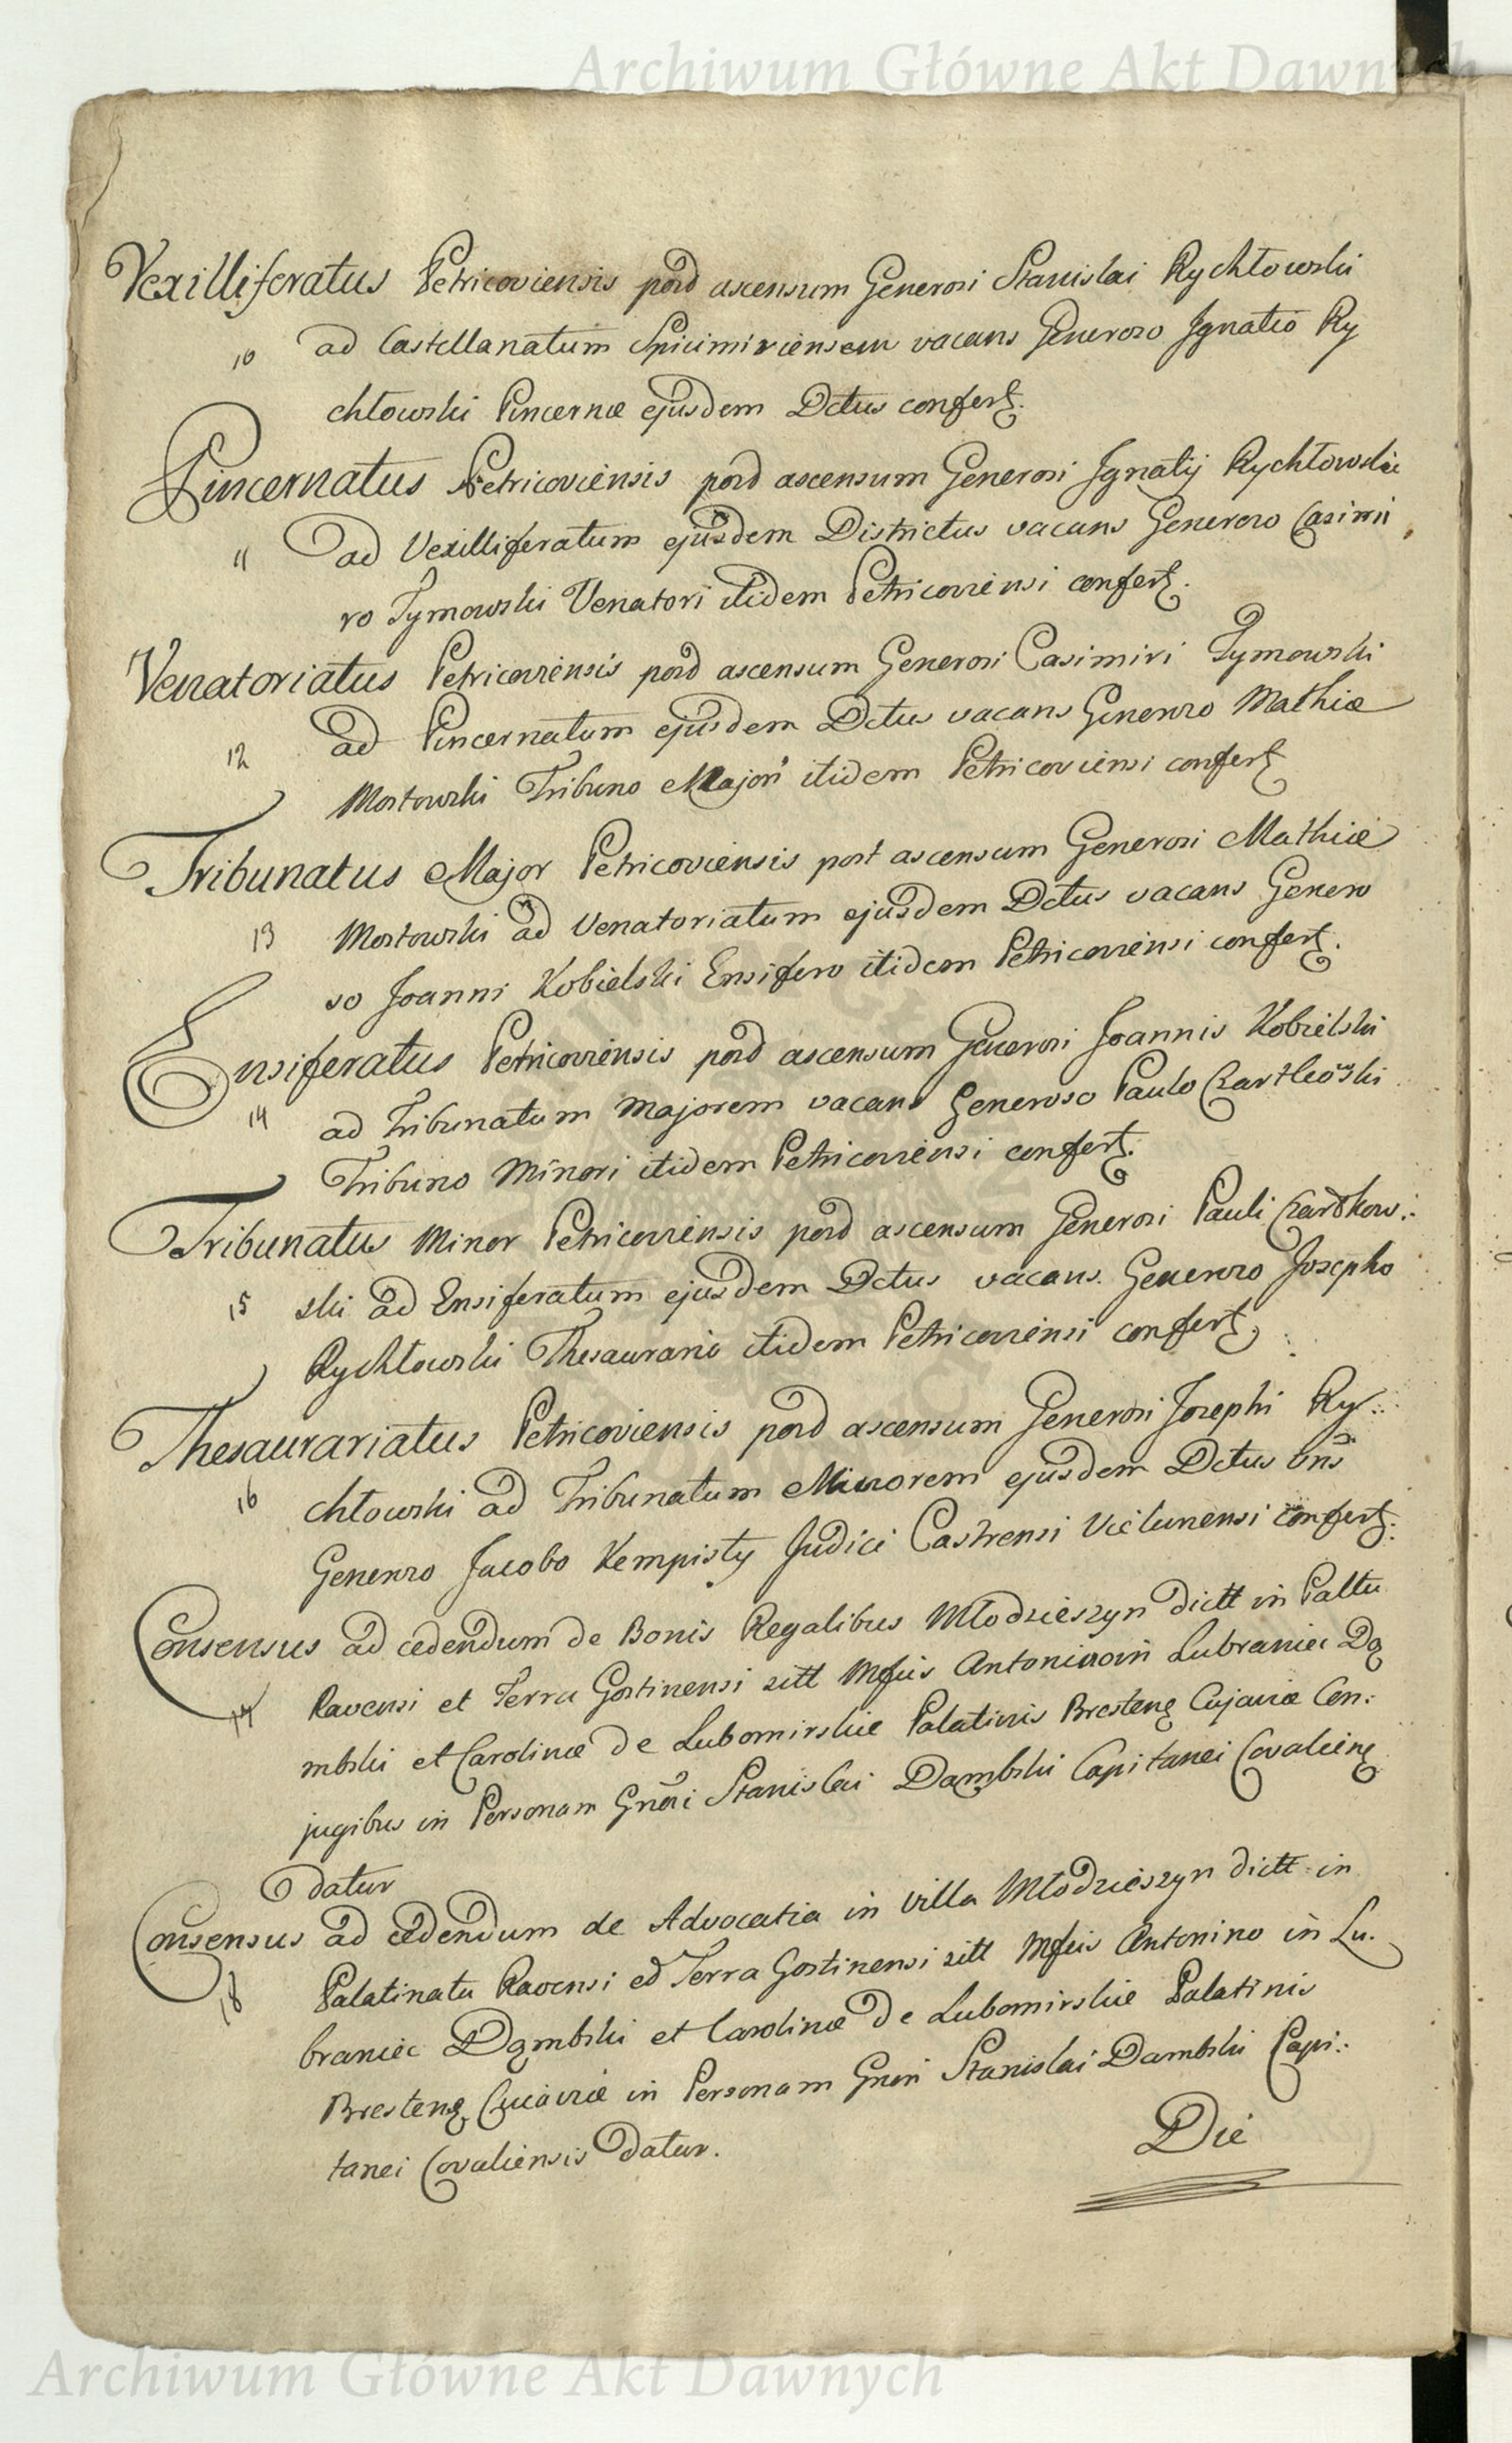 Archiwum Główne Akt Dawnych
Vexilliferatus Petricoviensis post ascensum Generosi Stanislai Rychłowski
10 ad Castellanatum Spicimiriensem vacans Generoso Ignatio Ry
chłowski Pincernæ ejusdem Dctus confert.
Pincernatus Petricoviensis post ascensum Generosi Ignatij Rychłowski
11 ad Vexilliferatum ejusdem Districtus vacans Generoso Casimi
ro Tymowski Venatori itidem Petricoviensi confert.
Venatoriatus Petricoviensis post ascensum Generosi Casimiri Tymowski
12 ad Pincernatum ejusdem Dctus vacans Generoso Mathiæ
Mostowski Tribuno Majori itidem Petricoviensi confert
Tribunatus Major Petricoviensis post ascensum Generosi Mathiæ
13 Mostowski ad Venatoriatum ejusdem Dctus vacans Genero
so Joanni Kobielski Ensifero itidem Petricoviensi confert.
Ensiferatus Petricoviensis post ascensum Generosi Joannis Kobielski
14 ad Tribunatum Majorem vacans Generoso Paulo
Tribuno Minori itidem Petricoviensi confert.
Tribunatus Minor Petricoviensis post ascensum Generosi Pauli
15 ski ad Ensiferatum ejusdem Dctus vacans. Generoso Josepho
Rychłowski Thesaurario itidem Petricoviensi confert
Thesaurariatus Petricoviensis post ascensum Generosi Josephi Ry:
16 chłowski ad Tribunatum Minorem ejusdem Dctus vns
Generoso Jacobo Kempisty Judici Castrensi Vielunensi confert.
Consensus ad cedendum de Bonis Regalibus Młodzieszyn dictt in Palttu
17 Ravensi et Terra Gostinensi sitt Mfcis Antonino in Lubraniec Dą
mbski et Carolinæ de Lubomirskie Palatinis Bresten Cujaviæ Con:
jugibus in Personam Gnosi Stanislai Dambski Capitanei Covalien
datur
Consensus ad cedendum de Advocatia in villa Młodzieszyn dictt in
18 Palatinatu Ravensi et Terra Gostinensi sitt Mfcis Antonino in Lu.
braniec Dąmbski et Carolinæ de Lubomirskie Palatinis
Bresten Cujaviæ in Personam Gnosi Stanislai Dambski Capi:
tanei Covaliensis datur.
Die
Archiwum Główne Akt Dawnych